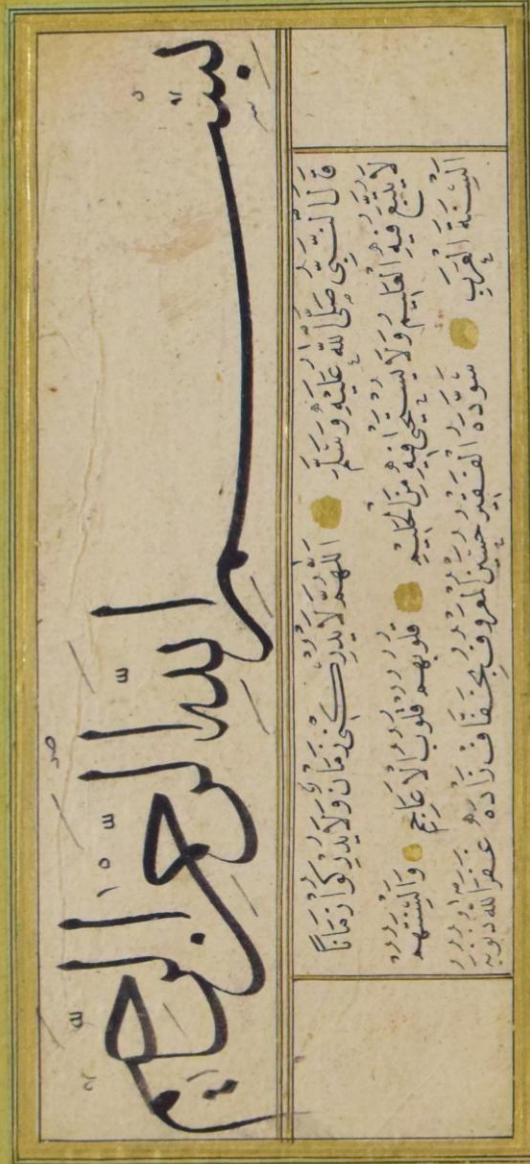 بسم الله الرحمن الرحيم
قَالَ النَّبِيُّ صَلَّى اللهُ عَلَيْهِ وَسَلَّمَ اَللّٰهُمَّ لَا يُدْرِكْنِي زَمَانٌ وَلَا يُدْرِكُوا زَمَانًا
لَا يُتَّبَعُ فِيهِ الْعَلِيمُ وَلَا يُسْتَحْيٰى فِيهِ مِنَ الْحَلِيمِ قُلُوبُهُمْ قُلُوبُ الْاَعَاجِمِ وَاَلْسِنَتُهُمْ
اَلْسِنَةُ الْعَرَبِ سَوَّدَهُ الْفَقِيرُ حسين الْمَعْرُوفُ بخفاف زاده غَفَرَ اللهُ ذُنُوبَهُ